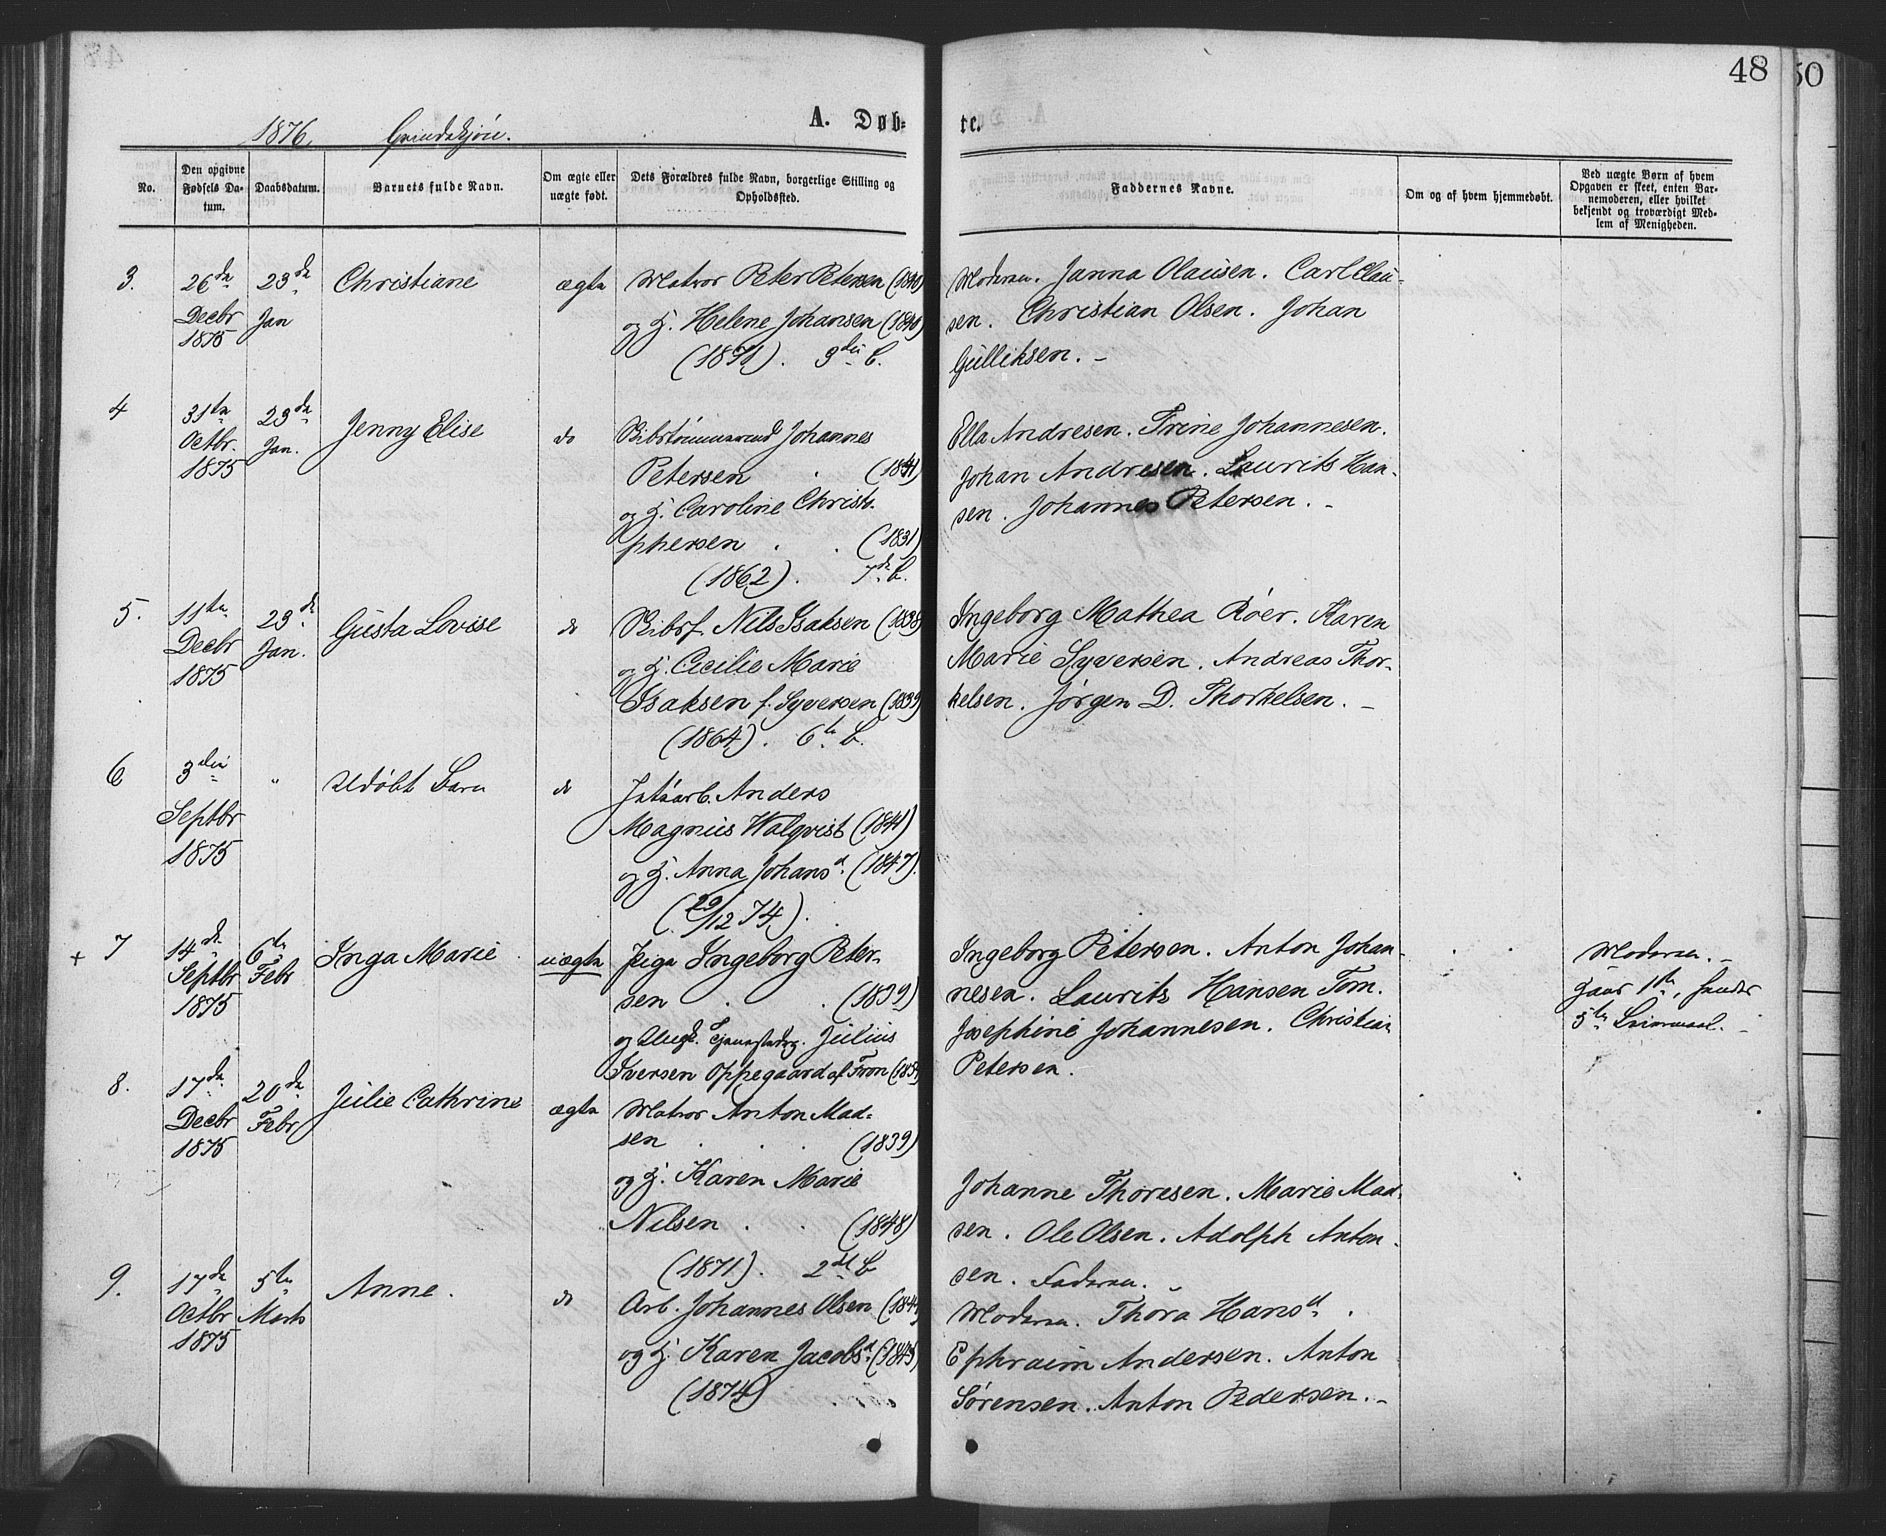 48
50
A. Døb-
te.
1876.
No.
Den opgivne
Fødsels Da-
tum.
Daabsdatum.
Barnets fulde Navn.
Om ægte eller
uægte født.
Dets Forældres fulde Navn, borgerlige Stilling og
Opholdssted.
Faddernes Navne.
Om og af hvem hjemmedøbt.
Ved uægte Børn af hvem
Opgaven er skeet, enten Bar-
nemoderen, eller hvilket
bekjendt og troværdigt Med-
lem af Menigheden.
3.
26de
Decbr
1875
23de
Jan
Christiane
ægte
Matros Peter Petersen (1840)
og H. Helene Johansen (1840)
(1871). 3die B.
Moderen. Janna Olausen. Carl Clau-
sen. Christian Olsen. Johan
Gulliksen. –
4
31te
Octbr.
1875
23de
Jan.
Jenny Elise
do
Skibstømmermd Johannes
Petersen . (1841)
og H. Caroline Christo-
phersen . . (1831)
(1862). 7de B.
Ella Andresen. Trine Johannesen.
Johan Andresen. Laurits Han-
sen. Johannes Petersen. –
5.
11te
Decbr
1875
23de
Jan.
Gusta Lovise
do
Skibsf. Nils Isaksen (1838)
og H. Cecilie Marie
Isaksen f. Syversen (1839)
(1864). 6te B.
Ingeborg Mathea Röer. Karen
Marie Syversen. Andreas Thor-
kelsen. Jørgen D. Thorkelsen. –
6
3die
Septbr
1875
"
Udøbt Barn
do
Anders
Magnus Walqvist (1841)
og H. Anna Johansd. (1847).
(29/12 74).
+ 7
14de
Septbr
1875
6te
Febr
Inga Marie
uægte
Pige Ingeborg Peter-
sen . . (1839)
og Ungk. Julius
Iversen Oppegaard af Fron
Ingeborg Petersen. Anton Johan-
nesen. Laurits Hansen Tom.
Josephine Johannesen. Christian
Petersen.
Moderen. –
Hans 1te, hendes
5te Leiermaal. –
8.
17de
Decbr
1875
20de
Febr
Julie Cathrine
ægte
Matros Anton Mad-
sen . . . (1839)
og H. Karen Marie
Nilsen . . (1848)
(1871). 2det B
Johanne Thoresen. Marie Mad-
sen. Ole Olsen. Adolph Anton-
sen. Faderen. –
9.
17de
Octbr
1875
5te
Marts
Anne.
do
Arb. Johannes Olsen
og H. Karen Jacobsd. (1845)
(1874)
Moderen. Thora Hansd.
Ephraim Andersen. Anton
Sørensen. Anton Pedersen. –